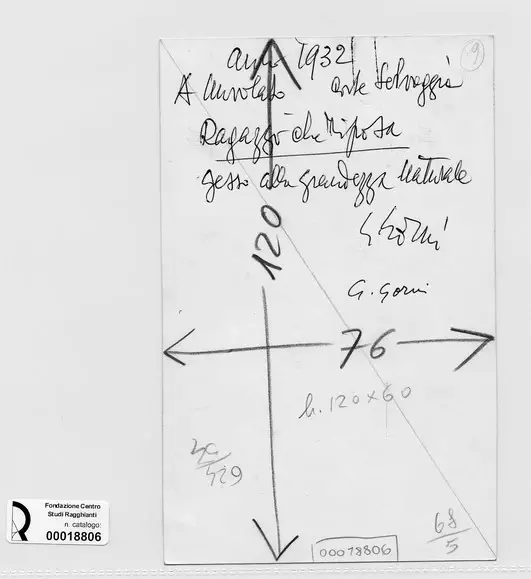 anno 1932
9
A Nuvolato
Ragazzo che Riposa
gesso alla grandezza naturale
G Gorni
120
G. Gorni
76
h. 120 x 60
68/5
Fondazione Centro
Studi Ragghianti
n. catalogo:
00018806
00018806